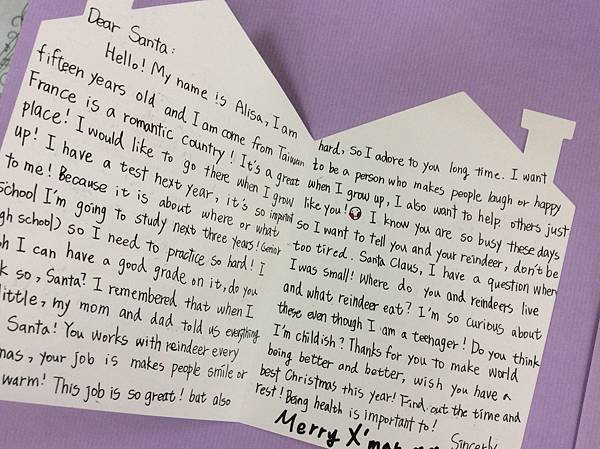 Dear Santa:
Hello! My name is Alisa, I am
fifteen years old and I am come from Taiwan
France is a romantic country! It's a great
place! I would like to go there when I grow
up! I have a test next year, it's so important
to me! Because it is about where or what
school I'm going to study next three years! (senior
gh school) so I need to practice so hard! I
h I can have a good grade on it, do you
k so, Santa? I remembered that when I
little, my mom and dad told us everything
Santa! You works with reindeer every
mas, your job is makes people smile or
warm! This job is so great! but also
hard, so I adore to you long time. I want
to be a person who makes people laugh or happy
when I grow up, I also want to help others just
like you! I know you are so busy these days
so I want to tell you and your reindeer, don't be
too tired. Santa Claus, I have a question when
I was small! Where do you and reindeers live
and what reindeer eat? I'm so curious about
these even though I am a teenager! Do you think
I'm childish? Thanks for you to make world
being better and better, wish you have a
best Christmas this year! Find out the time and
rest! Being health is important to!
Merry X'mas
Sincerly